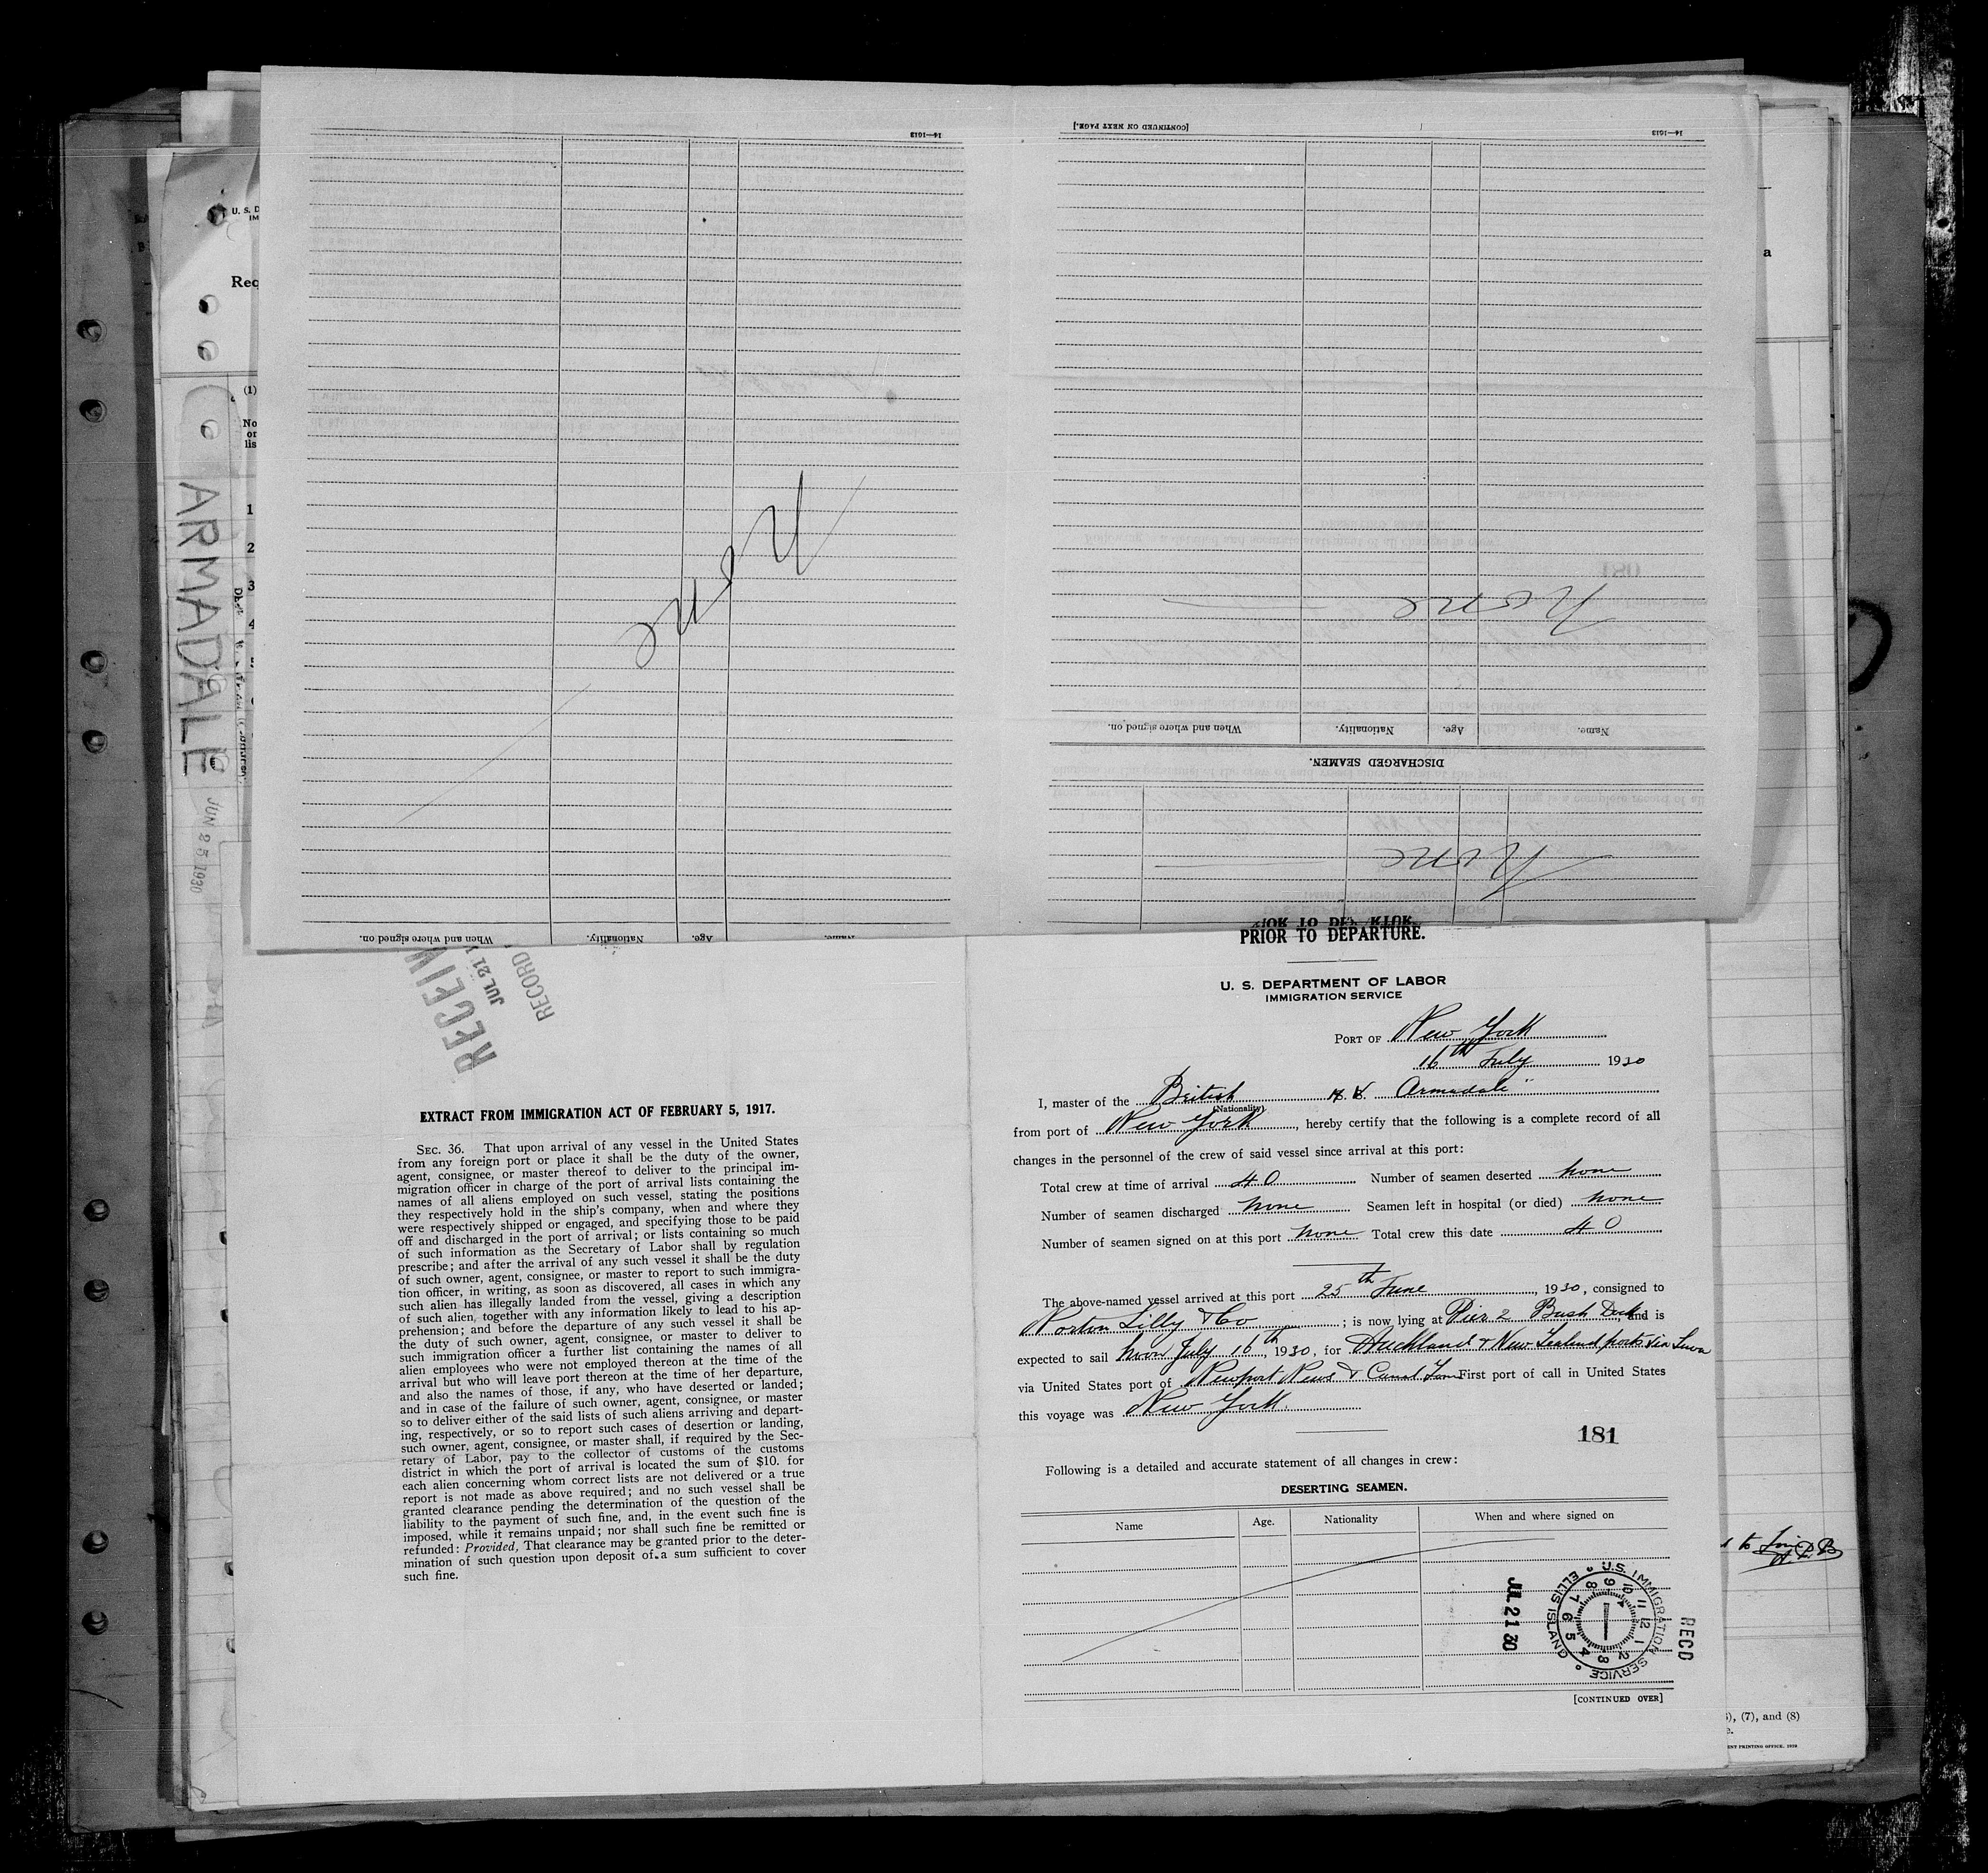 [CONTINUED ON NEXT PAGE.]
14—1613
14—1613
U. S. D
IM
Rec
a
(1)
No
or
lis
1
2
3
4
ARMADALE
JUN 25 1930
None
None
When and where signed on.
Nationality.
Age.
Name.
DISCHARGED SEAMEN.
None
When and where signed on.
Nationality.
Age.
Name.
RECEIV
JUL 21
RECORD
EXTRACT FROM IMMIGRATION ACT OF FEBRUARY 5, 1917.
SEC. 36. That upon arrival of any vessel in the United States
from any foreign port or place it shall be the duty of the owner,
agent, consignee, or master thereof to deliver to the principal im-
migration officer in charge of the port of arrival lists containing the
names of all aliens employed on such vessel, stating the positions
they respectively hold in the ship's company, when and where they
were respectively shipped or engaged, and specifying those to be paid
off and discharged in the port of arrival; or lists containing so much
of such information as the Secretary of Labor shall by regulation
prescribe; and after the arrival of any such vessel it shall be the duty
of such owner, agent, consignee, or master to report to such immigra-
tion officer, in writing, as soon as discovered, all cases in which any
such alien has illegally landed from the vessel, giving a description
of such alien, together with any information likely to lead to his ap-
prehension; and before the departure of any such vessel it shall be
the duty of such owner, agent, consignee, or master to deliver to
such immigration officer a further list containing the names of all
alien employees who were not employed thereon at the time of the
arrival but who will leave port thereon at the time of her departure,
and also the names of those, if any, who have deserted or landed;
and in case of the failure of such owner, agent, consignee, or master
so to deliver either of the said lists of such aliens arriving and depart-
ing, respectively, or so to report such cases of desertion or landing,
such owner, agent, consignee, or master shall, if required by the Sec-
retary of Labor, pay to the collector of customs of the customs
district in which the port of arrival is located the sum of $10. for
each alien concerning whom correct lists are not delivered or a true
report is not made as above required; and no such vessel shall be
granted clearance pending the determination of the question of the
liability to the payment of such fine, and, in the event such fine is
imposed, while it remains unpaid; nor shall such fine be remitted or
refunded: Provided, That clearance may be granted prior to the deter-
mination of such question upon deposit of a sum sufficient to cover
such fine.
PRIOR TO DEPARTURE.
U. S. DEPARTMENT OF LABOR
IMMIGRATION SERVICE
PORT OF New York
16th July 1930
I, master of the British Armadale"
(Nationality)
from port of New York, hereby certify that the following is a complete record of all
changes in the personnel of the crew of said vessel since arrival at this port:
Total crew at time of arrival 40 Number of seamen deserted none
Number of seamen discharged none Seamen left in hospital (or died) none
Number of seamen signed on at this port none Total crew this date 40
The above-named vessel arrived at this port 25th June, 1930, consigned to
Norton Lilly & Co; is now lying at Pier 2 Bush Dock, and is
expected to sail Noon July 16th, 1930, for Auckland & New Zealand ports via Suva
via United States port of Newport News & Canal Zone First port of call in United States
this voyage was New York
181
Following is a detailed and accurate statement of all changes in crew:
DESERTING SEAMEN.
Name Age. Nationality When and where signed on
JUL 21 30
U.S. IMMIGRATION SERVICE
ELLIS ISLAND
10 11 12 1 2 3 4 5 6 7 8 9
RECD
[CONTINUED OVER]
), (7), and (8)
ENT PRINTING OFFICE. 1928